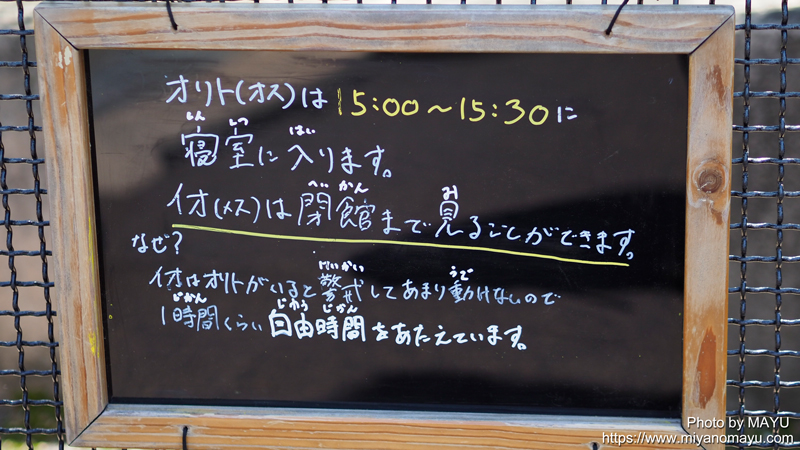 オリト(オス)は 15:00～15:30に
しん しつ はい
寝室に入ります。
へい かん み
イオ(メス)は閉館まで見ることができます。
なぜ?
けいかい うご
イオはオリトがいると警戒してあまり動けないので
じかん じゆう じかん
1時間くらい自由時間をあたえています。
Photo by MAYU
https://www.miyanomayu.com